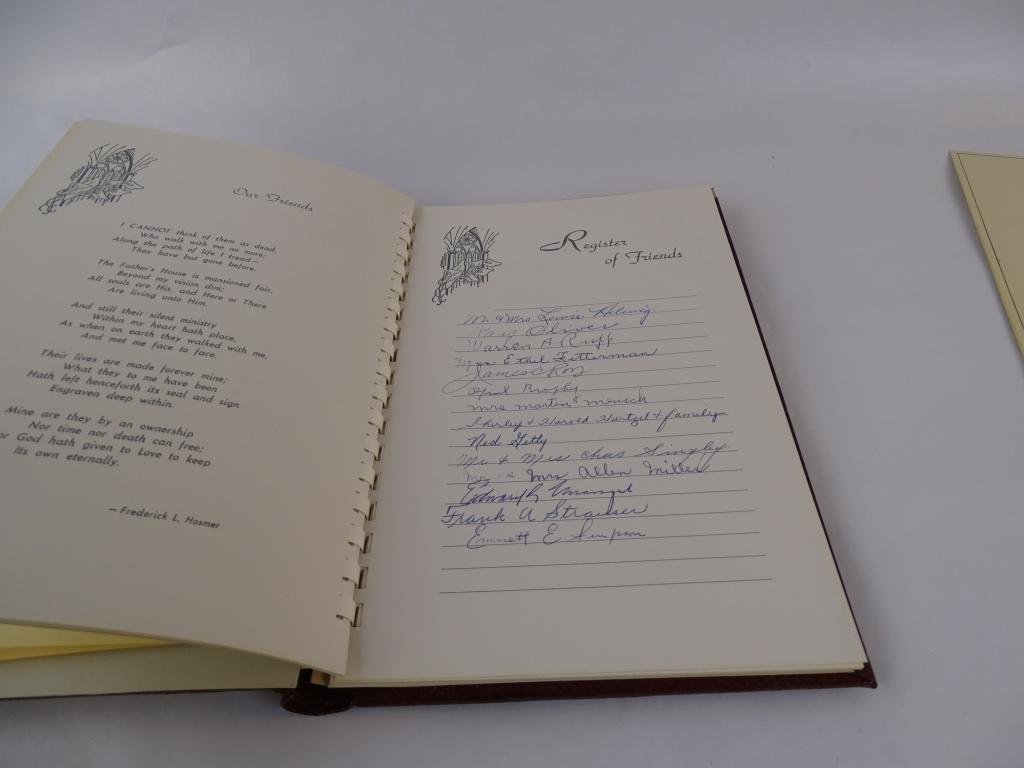 Our Friends
I CANNOT think of them as dead,
Who walk with me no more;
Along the path of life I tread—
They have but gone before.
The Father's House is mansioned fair,
Beyond my vision dim;
All souls are His, and Here or There
Are living unto Him.
And still their silent ministry
Within my heart hath place,
As when on earth they walked with me,
And met me face to face.
Their lives are made forever mine;
What they to me have been
Hath left henceforth its seal and sign
Engraven deep within.
Mine are they by an ownership
Nor time nor death can free;
For God hath given to Love to keep
Its own eternally.
—Frederick L. Hosmer
Register
of Friends
Mr. & Mrs Lewis Helwig
Oliver
Warren A Ruff
Mrs Ethel Fetterman
James C
Mrs Martin Mensch
Shirley & Harold Hartzel & family
Ned Getty
Mr & Mrs Chas
Mr & Mrs Allen Miller
Frank A Strausser
Emmett E. Simpson